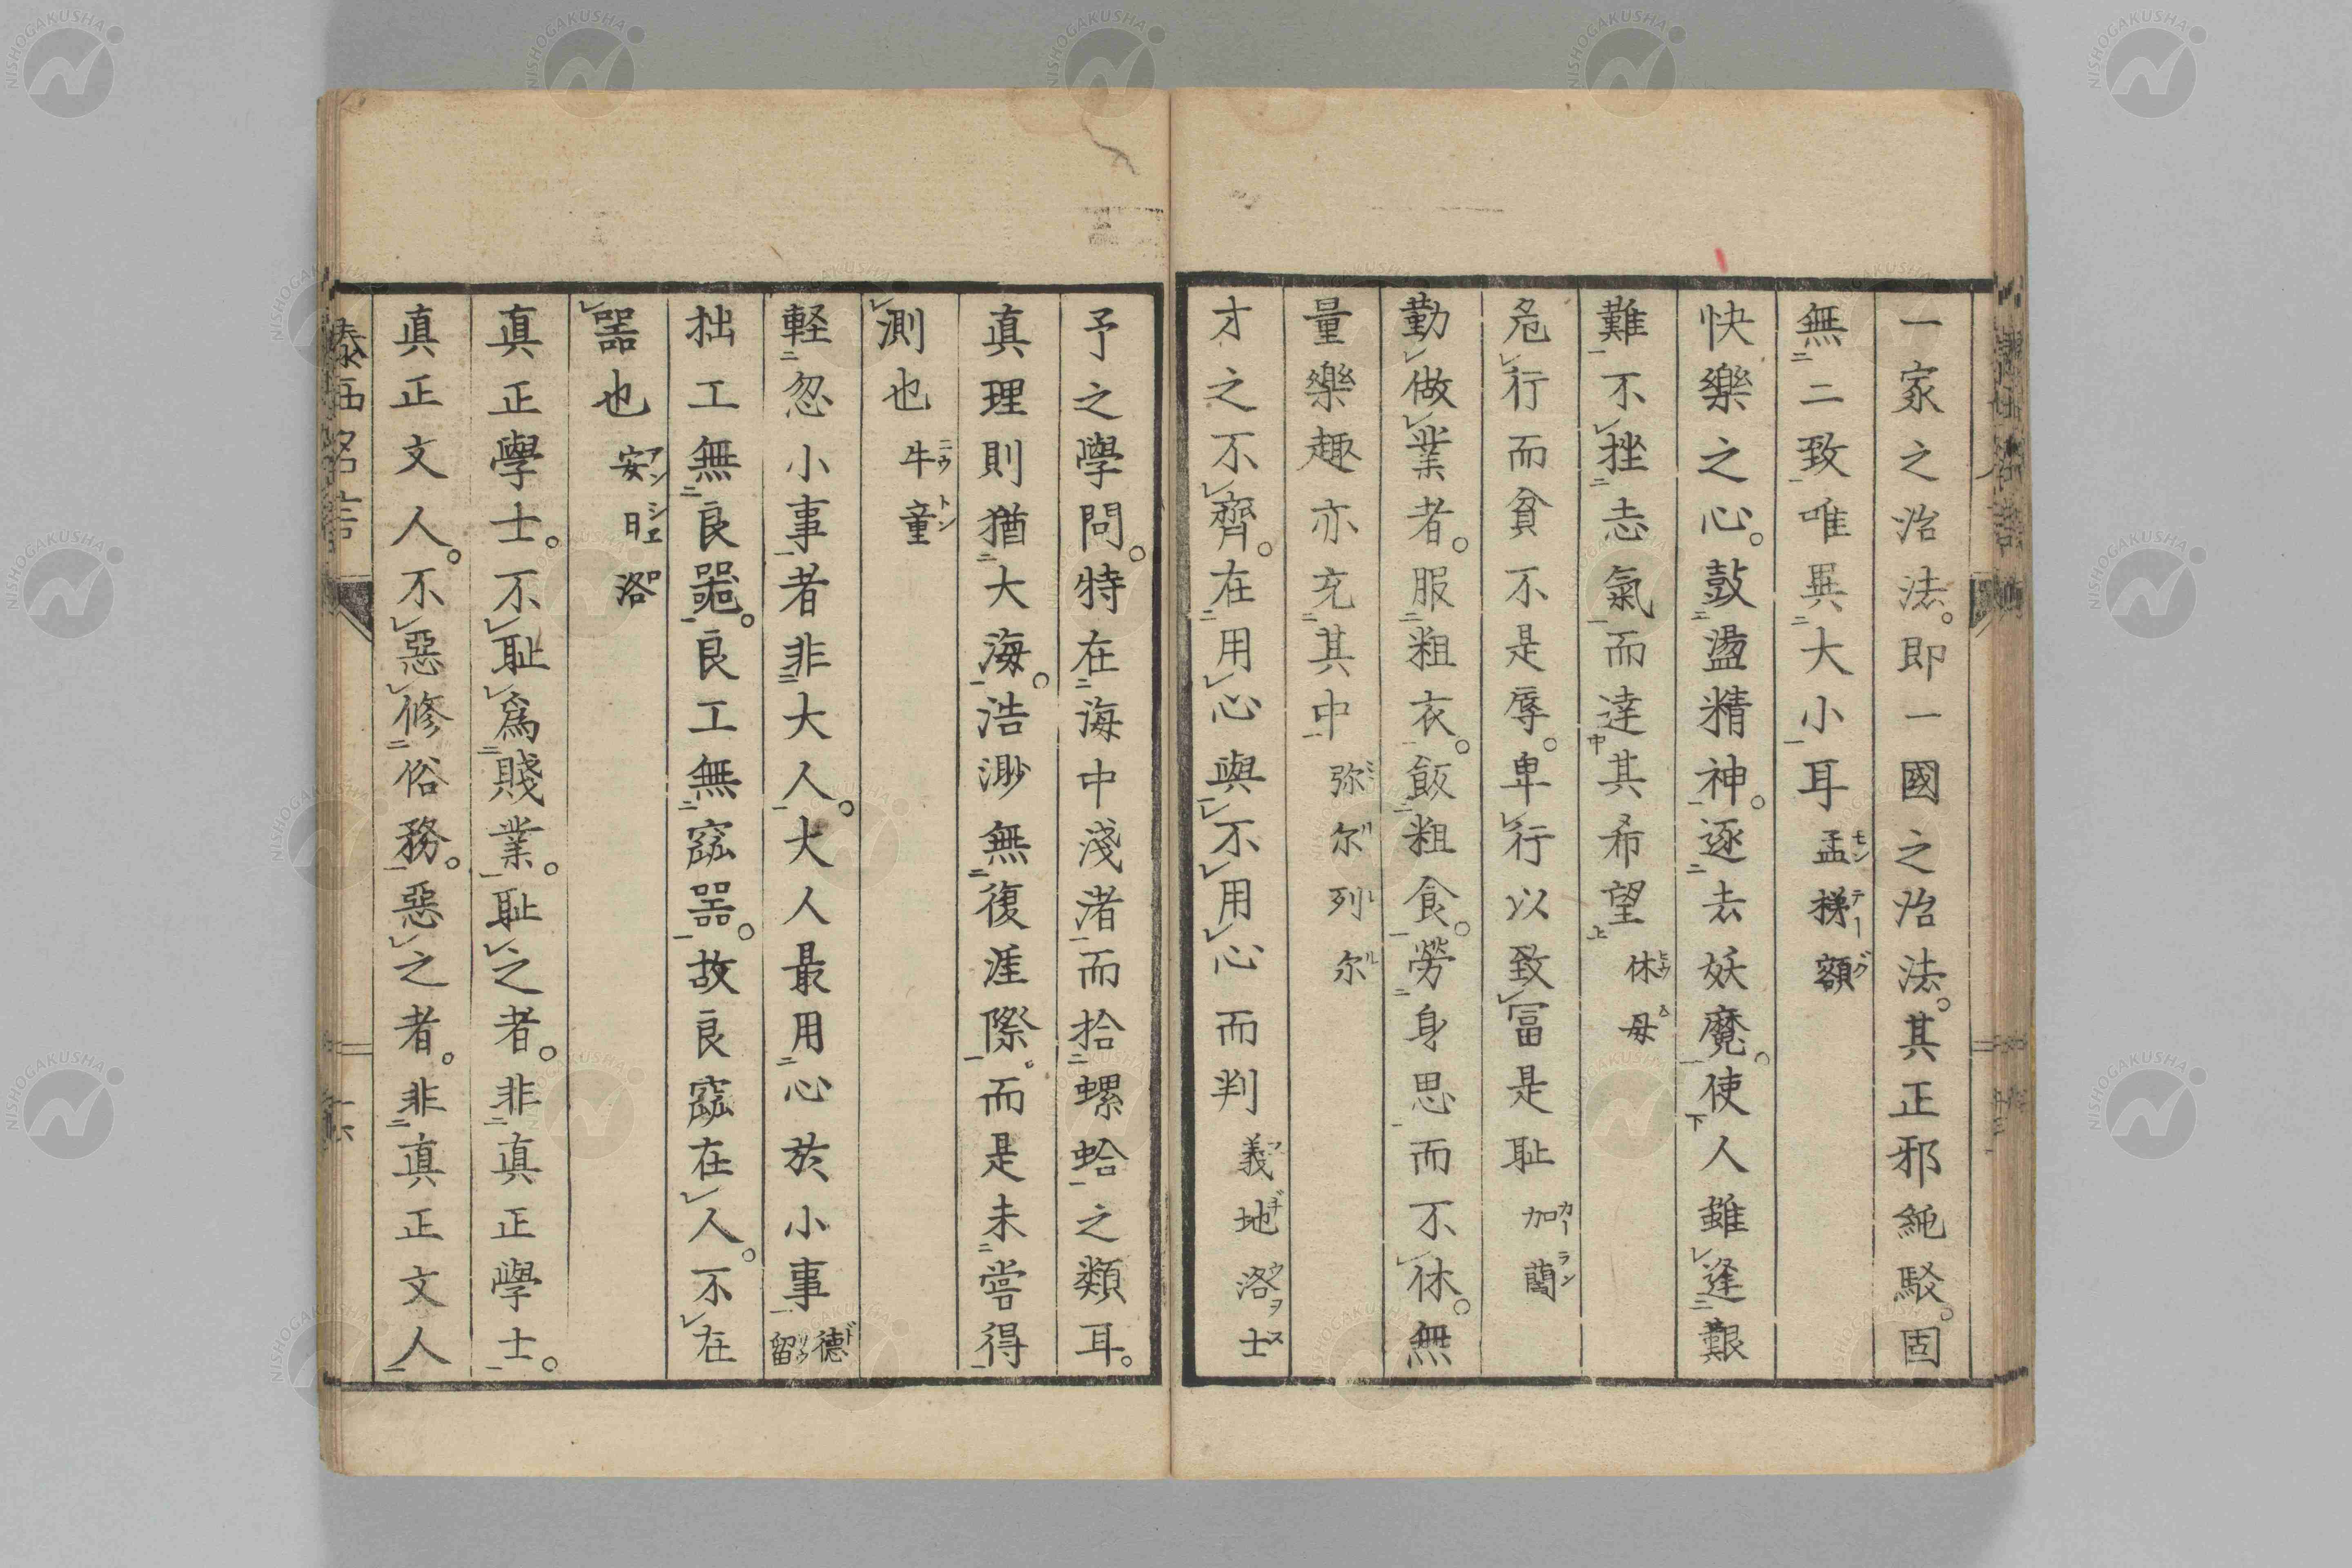 一家之治法。即一國之治法。其正邪純駁。固
無二致唯異大小耳 孟梯額 モンテーグ
快樂之心。鼓盪精神。逐去妖魔。使人雖逢艱
難不挫志氣而達其希望 休母
危行而貧不是辱。卑行以致富是耻 加蘭 カーラン
勤做業者。服粗衣。飯粗食。勞身思而不休。無
量樂趣亦充其中 弥尔列尔
才之不齊。在用心與不用心而判 義地洛士
予之學問。特在海中淺渚而拾螺蛤之類耳。
真理則猶大海。浩渺無復涯際。而是未嘗得
測也 牛童 ニウトン
軽忽小事者非大人。大人最用心於小事 德留
拙工無良噐。良工無窳噐。故良窳在人。不在
噐也 安曰洛 アンジエロ
真正學士。不耻爲賤業。耻之者。非真正學士。
真正文人。不惡修俗務。惡之者。非真正文人
泰西名言